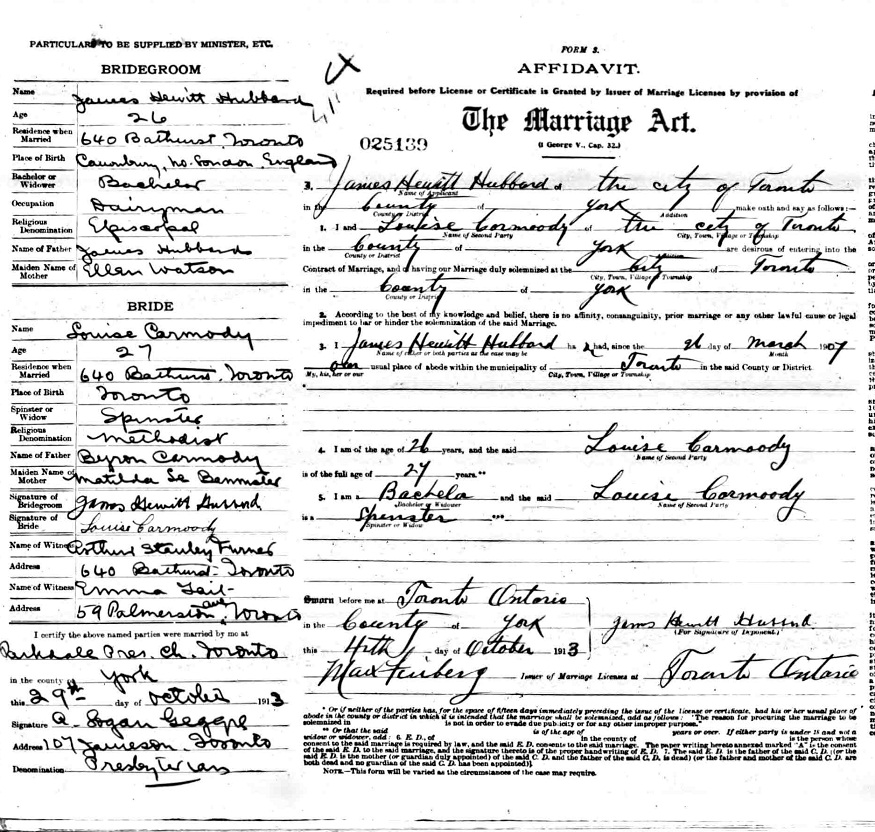 PARTICULARS TO BE SUPPLIED BY MINISTER, ETC.
BRIDEGROOM
Name James Hewitt Hubbard
Age 26
Residence when Married 640 Bathurst, Toronto
Place of Birth Canonbury, No. London, England
Bachelor or Widower Bachelor
Occupation Dairyman
Religious Denomination Episcopal
Name of Father James Hubbard
Maiden Name of Mother Ellen Watson
BRIDE
Name Louise Carmody
Age 27
Residence when Married 640 Bathurst, Toronto
Place of Birth Toronto
Spinster or Widow Spinster
Religious Denomination Methodist
Name of Father Byron Carmody
Maiden Name of Mother Matilda
Signature of Bridegroom James Hewitt Hubbard
Signature of Bride Louise Carmoody
Name of Witness Arthur Stanley Turner
Address 640 Bathurst Toronto
Name of Witness Emma
Address 59 Palmerston ave, Toronto
I certify the above named parties were married by me at
Parkdale Pres. Ch. Toronto
in the county of York
this 29th day of October 1913
Signature A. Logan Geggie
Address 107 Jameson. Toronto
Denomination Presbyterian
FORM 3.
AFFIDAVIT.
Required before License or Certificate is Granted by Issuer of Marriage Licenses by provision of
The Marriage Act.
025139
(1 George V., Cap. 32.)
I, James Hewitt Hubbard of the city of Toronto
Name of Applicant
in the County of York make oath and say as follows:—
County or District Addition
1. I and Louise Carmoody of the city of Toronto
Name of Second Party City, Town, Village or Township
in the County of York are desirous of entering into the
County or District Addition
Contract of Marriage, and of having our Marriage duly solemnized at the City of Toronto
City, Town, Village or Township
in the County of York
County or District
2. According to the best of my knowledge and belief, there is no affinity, consanguinity, prior marriage or any other lawful cause or legal
impediment to bar or hinder the solemnization of the said Marriage.
3. I James Hewitt Hubbard had, since the day of March 1907
Name of either or both parties as the case may be Month
our usual place of abode within the municipality of Toronto in the said County or District.
My, his, her or our City, Town, Village or Township
4. I am of the age of 26 years, and the said Louise Carmoody
Name of Second Party
is of the full age of 27 years.**
5. I am a Bachelor and the said Louise Carmoody
Bachelor or Widower Name of Second Party
is a Spinster ***
Spinster or Widow
Sworn before me at Toronto Ontario
in the County of York James Hewitt Hubbard
(For Signature of Deponent.)
this day of October 1913
Max Feinberg Issuer of Marriage Licenses at Toronto Ontario
* Or if neither of the parties has, for the space of fifteen days immediately preceding the issue of the license or certificate, had his or her usual place of
abode in the county or district in which it is intended that the marriage shall be solemnized, add as follows: 'The reason for procuring the marriage to be
solemnized in is not in order to evade due publicity or for any other improper purpose.'
** Or that the said is of the age of years or over. If either party is under 18 and not a
widow or widower, add: 6. E. D., of in the county of is the person whose
consent to the said marriage is required by law, and the said E. D. consents to the said marriage. The paper writing hereto annexed marked "A" is the consent
of the said E. D. to the said marriage, and the signature thereto is of the proper handwriting of E. D. 7. The said E. D. is the father of the said C. D. (or the
said E. D. is the mother (or guardian duly appointed) of the said C. D. and the father of the said C. D. is dead) (or the father and mother of the said C. D. are
both dead and no guardian of the said C. D. has been appointed)].
NOTE.—This form will be varied as the circumstances of the case may require.